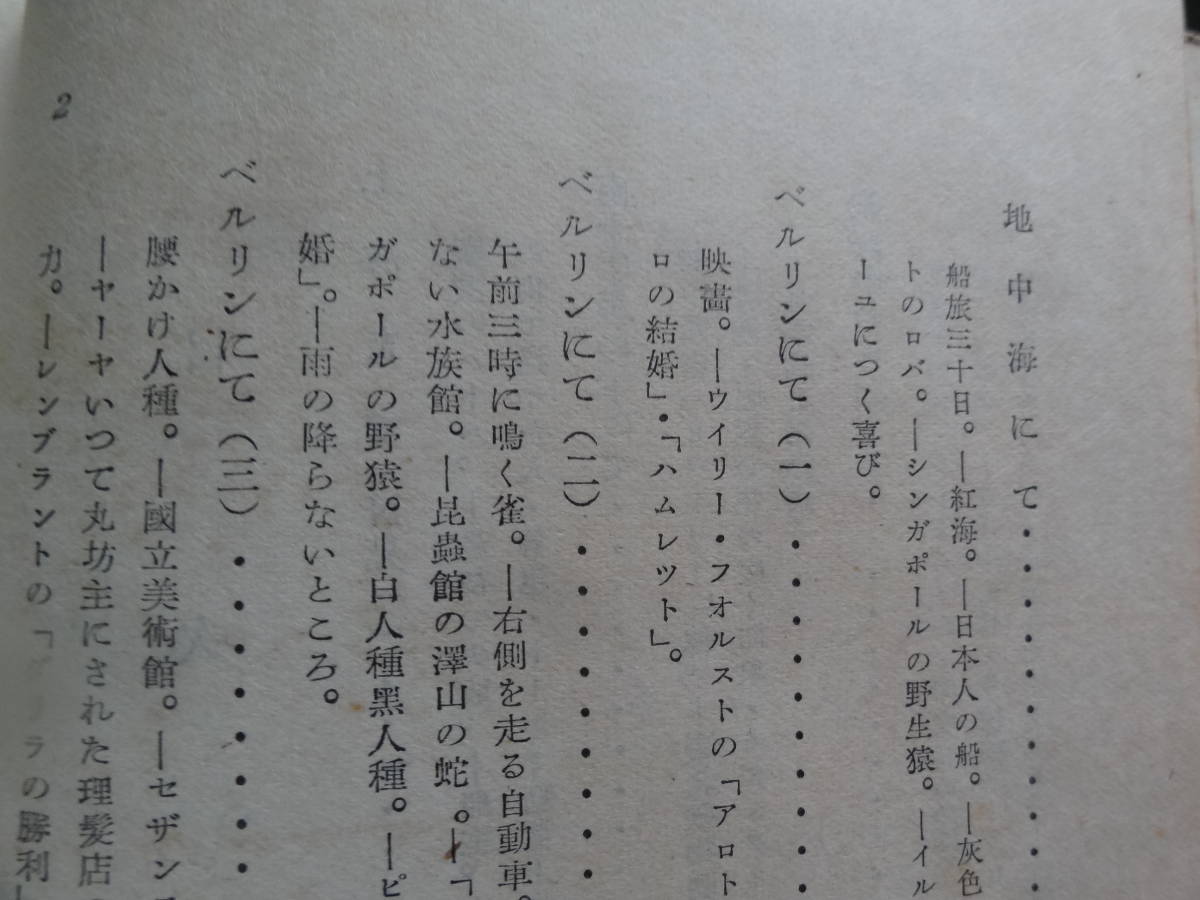 地中海にて・・・・・・・・
船旅三十日。―紅海。―日本人の船。―灰色
トのロバ。―シンガポールの野生猿。―イル
ーユにつく喜び。
ベルリンにて（一）・・・・・・・
映畵。―ウイリー・フオルストの「アロト
ロの結婚」・「ハムレツト」。
ベルリンにて（二）・・・・・・・
午前三時に鳴く雀。―右側を走る自動車。
ない水族館。―昆蟲館の澤山の蛇。―「
ガポールの野猿。―白人種黑人種。―ピ
婚」。―雨の降らないところ。
ベルリンにて（三）・・・・・・・
腰かけ人種。―國立美術館。―セザン
―ヤーヤいつて丸坊主にされた理髮店
力。―レンブラントの「ラの勝利」
2